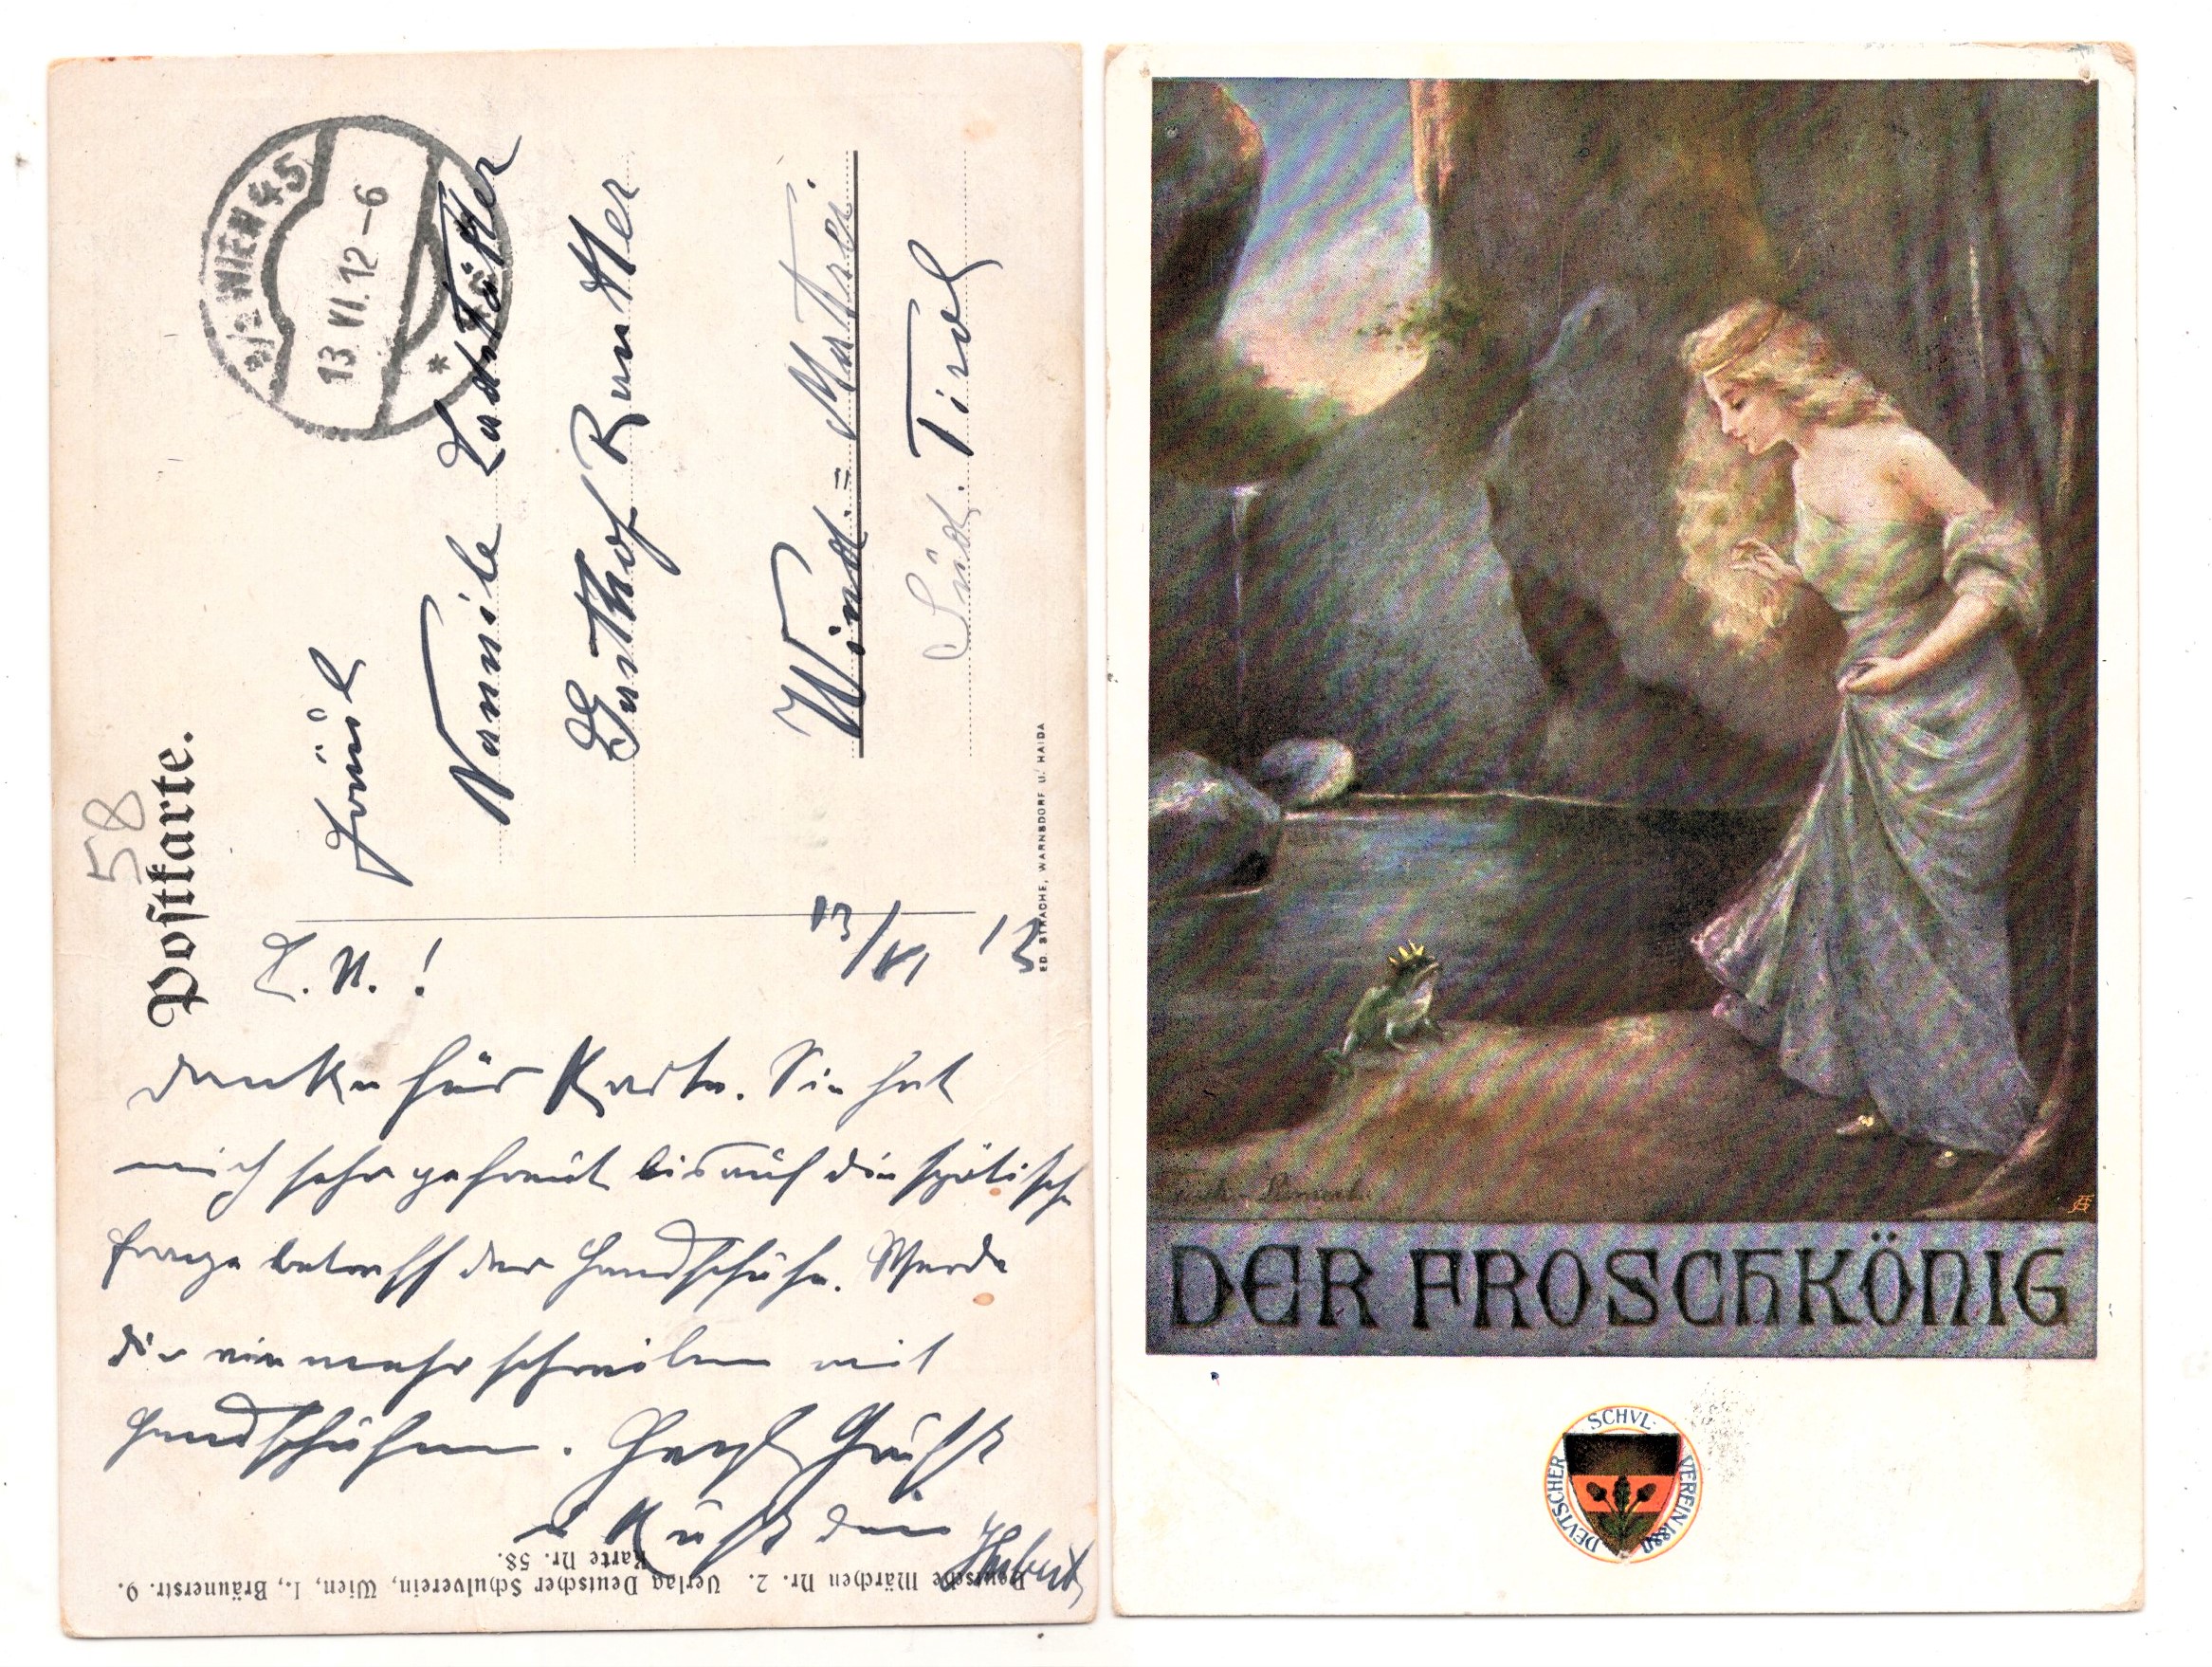 58
Postkarte.
*/2 WIEN 45
13 VI. 12–6
*
Fräul.
Nannile Ladstätter
Gasthof Rautter
Wind. = Matrei.
Süd. Tirol
ED. STRACHE, WARNSDORF U. HAIDA
13/VI 13
L. N.!
Danke für Karte. Sie hat
mich sehr gefreut bis auf die spötische
Frage betreff der Handschuhe. Werde
dir nie mehr schreiben mit
Handschuhen. Herzl Grüsse
u Küsse dein
Hubert
Deutsche Märchen Nr. 2. Verlag Deutscher Schulverein, Wien, I., Bräunerstr. 9.
Karte Nr. 58.
DER FROSCHKÖNIG
DEVTSCHER SCHVL-VEREIN 1880